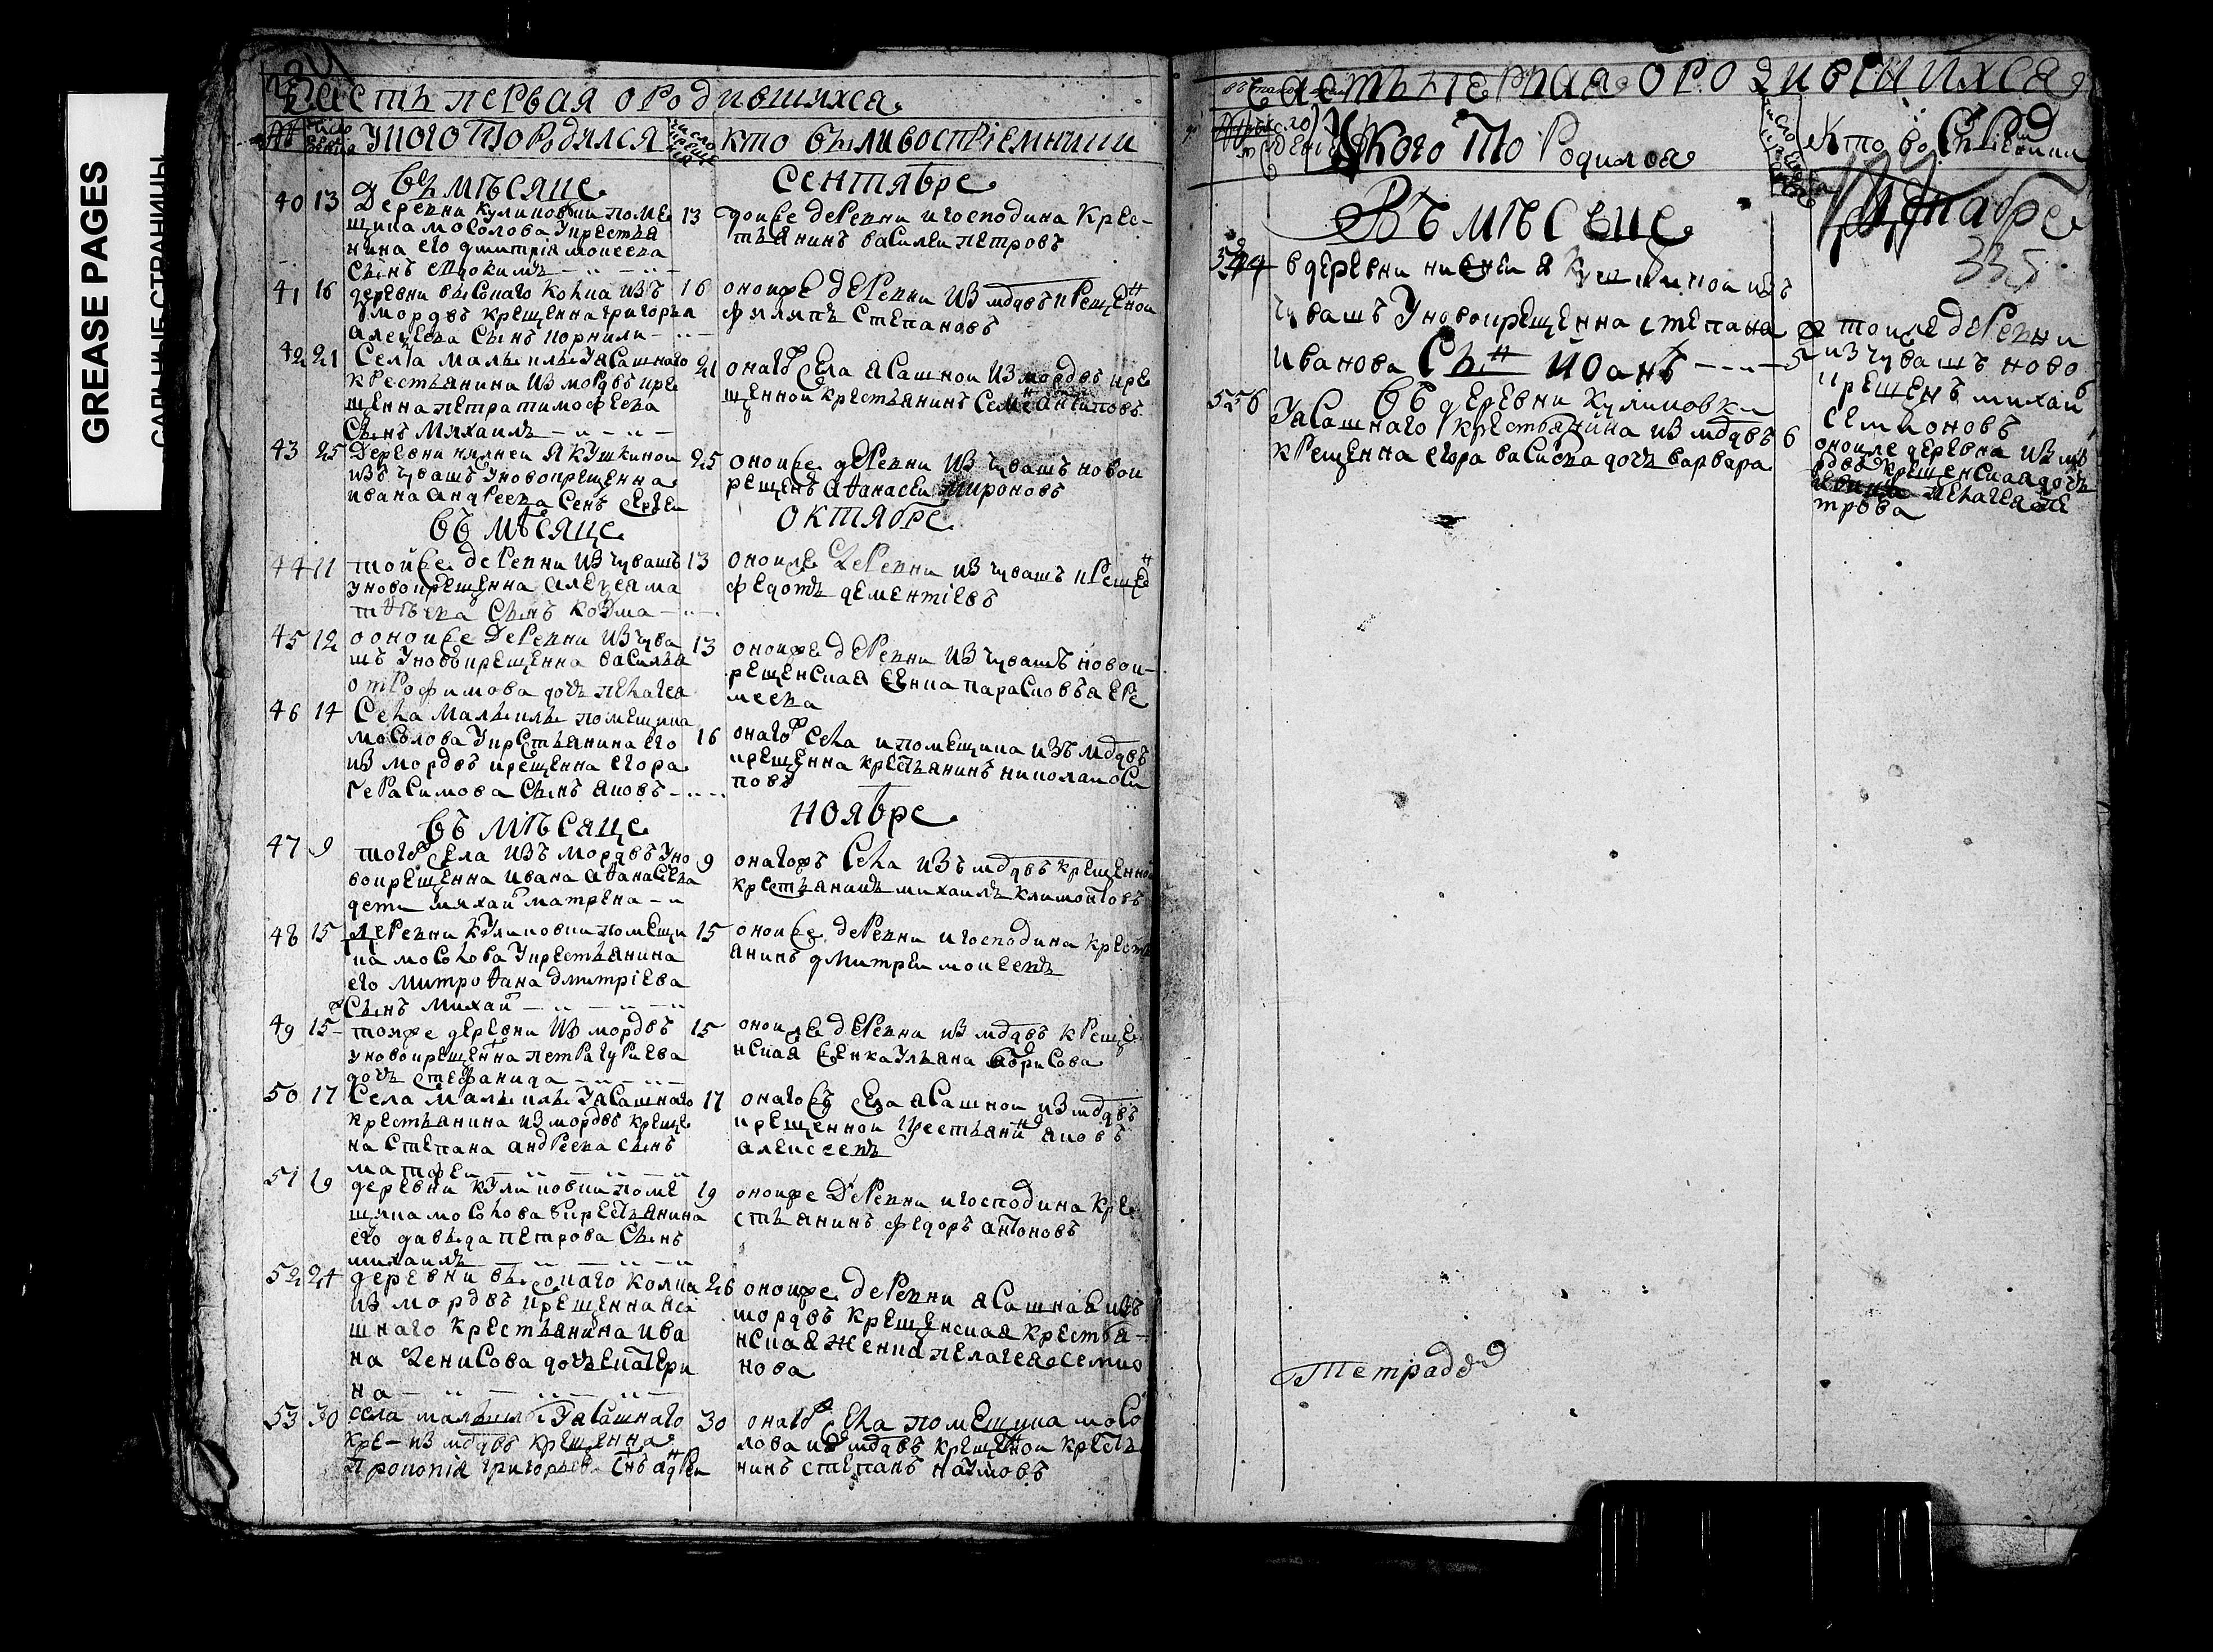 GREASE PAGES
САЛЬНЫЕ СТРАНИЦЫ
Часть первая о родившихся
У кого кто родился
кто были восприемники
въ мѣсяце
сентябре
40 13 Деревни Куликовки поме
щика Мосолова у крестья
нина его Дмитрия Моисеева
сынъ Евдокимъ
13 тоиже деревни и господина крес-
тьянинъ Василеи Петровъ
41 16 деревни Высокаго Колка изъ
мордвъ крещенна Григорья
Алеѯеева сынъ Корнили
16 оноиже деревни из мордвъ крещеннои
Филипъ Степановъ
42 21 Села Малыклы у ясашнаго
крестьянина из мордвъ кре
щенна Петра Тимофеева
сынъ Михаилъ
21 онагож села ясашнои из мордвъ кре
щеннои крестьянинъ Семенъ Антиповъ
43 25 Деревни нижнеи Якушкинои
изъ чувашъ у новокрещенна
Ивана Андреева сенъ Сергеи
25 оноиже деревни из чувашъ новок
рещенъ Аѳанасеи Мироновъ
въ мѣсяце
октябре
44 11 тоиже деревни из чувашъ
у новокрещенна Алеѯея Ма
тѳѣева сынъ Козма
13 оноиже деревни из чувашъ крещен
Федотъ Дементіевъ
45 12 оноиже деревни из чува
шъ у новокрещенна Василья
Трофимова дочь Пелагея
13 оноиже деревни из чувашъ новок-
рещенская женка Парасковья Ере
меева
46 14 Села Малыклы помещика
Мосолова у крестьянина его
из мордвъ крещенна Егора
Герасимова сынъ Яковъ
16 онагож села и помещика изъ мордвъ
крещенна крестьянинъ Николаи Оси
повъ
въ мѣсяце
ноябре
47 9 тогож села изъ мордвъ у но
вокрещенна Ивана Аѳанасева
дети Михаи Матрена
9 онагожъ села изъ мордвъ крещеннои
крестьянинъ Михаилъ Климонтовъ
48 15 деревни Куликовки помещи
ка Мосолова у крестьянина
его Митроѳана Дмитріева
сынъ Михаи
15 оноиже деревни и господина кресть
янинъ Дмитреи Моисеевъ
49 15 тояже деревни из мордвъ
у новокрещенна Петра Гуриева
дочь Стефанида
15 оноиже деревни из мордвъ креще
нская женка Ульяна Борисова
50 17 Села Малыклы у ясашнаго
крестьянина из мордвъ креще
на Степана Андреева сынъ
Матфеи
17 онагожъ села ясашнои из мордвъ
крещеннои крестьянин Яковъ
Алексеевъ
51 19 деревни Куликовки поме
щика Мосолова у крестьянина
его Давыда Петрова сынъ
михаилъ
19 оноиже деревни и господина кре
стьянинъ Федоръ Антоновъ
52 24 деревни Высокаго Колка
из мордвъ крещенна яса
шнаго крестьянина Ива
на Денисова дочь Екатери
на
26 оноиже деревни ясашная изъ
мордвъ крещенская крестья-
нская женка Пелагея Семио
нова
53 30 села Малыклы у ясашнаго
кре- из мордвъ крещенна
Прокопія Григорьев снъ Андреи
30 онагож села помещика Мосо
лова из мордвъ крещеннои крестья
нинъ Степанъ Наумовъ
Часть первая о родившихся
У кого кто родился
Кто
Въ мѣсеце
Декабре
335
54 4 в деревни нижнеи Якушкинои изъ
чувашъ у новокрещенна Степана
Иванова сын Иоанъ
5 тоиже деревни
из чувашъ ново
крещенъ Михаи
Семионовъ
55 6 въ деревни Куликовки
у ясашнаго крестьянина из мордвъ
крещенна Егора Васиева дочь Варвара
6 оноиже деревни из мо
рдвъ крещенская дочь
Пелагея Пе
трова
Тетрадь